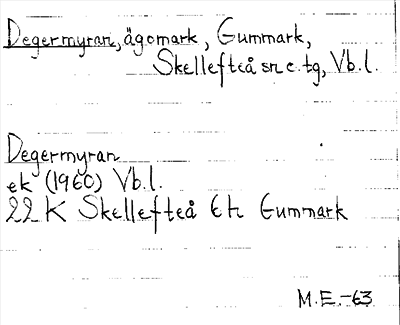 Degermyran, ägomark, Gummark,
Skellefteå sn c. tg, Vb. l.
Degermyran
ek (1960) Vb. l.
22 K Skellefteå 6 h Gummark
M. E. -63